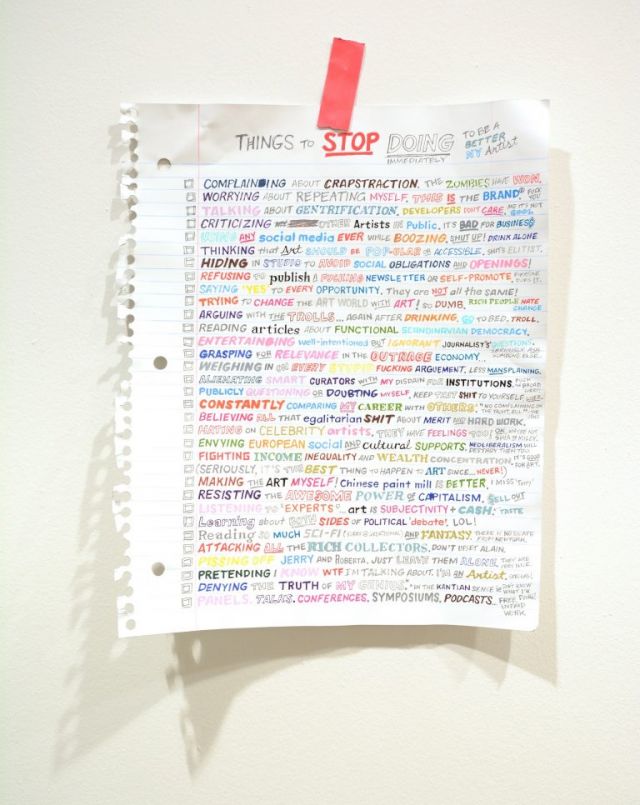 THINGS TO STOP DOING IMMEDIATELY TO BE A BETTER NY Artist
COMPLAINING ABOUT CRAPSTRACTION. THE ZOMBIES HAVE WON.
WORRYING ABOUT REPEATING MYSELF. THIS IS THE BRAND® FUCK YOU
TALKING ABOUT GENTRIFICATION. DEVELOPERS DON'T CARE, AND IT'S NOT COOL.
CRITICIZING OTHER Artists IN Public. IT'S BAD FOR BUSINE$$
USING ANY social media EVER WHILE BOOZING. SHUT UP! DRINK ALONE
THINKING that Art SHOULD BE POPULAR or ACCESSIBLE. SHIT'S ELITIST.
HIDING IN STUDIO TO AVOID SOCIAL OBLIGATIONS AND OPENINGS!
REFUSING TO publish A FUCKING NEWSLETTER OR SELF-PROMOTE. EVERYONE DOES IT.
SAYING 'YES' TO EVERY OPPORTUNITY. They are NOT all the same!
TRYING TO CHANGE THE ART WORLD WITH ART! SO DUMB. RICH PEOPLE HATE CHANGE
ARGUING WITH THE TROLLS... AGAIN AFTER DRINKING. GO TO BED. TROLL.
READING articles ABOUT FUNCTIONAL SCANDINAVIAN DEMOCRACY.
ENTERTAINING well-intentioned BUT IGNORANT JOURNALIST'S QUESTIONS. SERIOUSLY. ASK SOMEONE ELSE.
GRASPING FOR RELEVANCE IN THE OUTRAGE ECONOMY.
WEIGHING IN ON EVERY STUPID FUCKING ARGUEMENT. LESS MANSPLAINING.
ALIENATING SMART CURATORS WITH MY DISDAIN FOR INSTITUTIONS.
PUBLICLY QUESTIONING OR DOUBTING MYSELF. KEEP THAT SHIT TO YOURSELF
CONSTANTLY COMPARING MY CAREER WITH OTHERS.
BELIEVING ALL THAT egalitarian SHIT ABOUT MERIT AND HARD WORK.
HATING ON CELEBRITY artists. THEY HAVE FEELINGS TOO!
ENVYING EUROPEAN social AND cultural SUPPORTS. NEOLIBERALISM WILL DESTROY THEM TOO.
FIGHTING INCOME INEQUALITY AND WEALTH CONCENTRATION. IT'S GOOD FOR ART.
(SERIOUSLY, IT'S THE BEST THING TO HAPPEN TO ART SINCE... NEVER!)
MAKING THE ART MYSELF! Chinese paint mill IS BETTER. I MISS 'Terry'
RESISTING THE AWESOME POWER OF CAPITALISM. SELL OUT
LISTENING TO 'EXPERTS'. art IS SUBJECTIVITY + CASH! TASTE
Learning about BOTH SIDES OF POLITICAL 'debate'. LOL!
Reading SO MUCH SCI-FI AND FANTASY. THERE IS NO ESCAPE FROM NEW YORK.
ATTACKING ALL THE RICH COLLECTORS. DON'T UPSET ALAIN.
PISSING OFF JERRY AND ROBERTA. JUST LEAVE THEM ALONE. THEY ARE VERY NICE.
PRETENDING I KNOW WTF I'M TALKING ABOUT. I'M AN Artist.
DENYING THE TRUTH OF MY GENIUS. *IN THE KANTIAN SENSE
PANELS. TALKS. CONFERENCES. SYMPOSIUMS. PODCASTS. FREE WORK